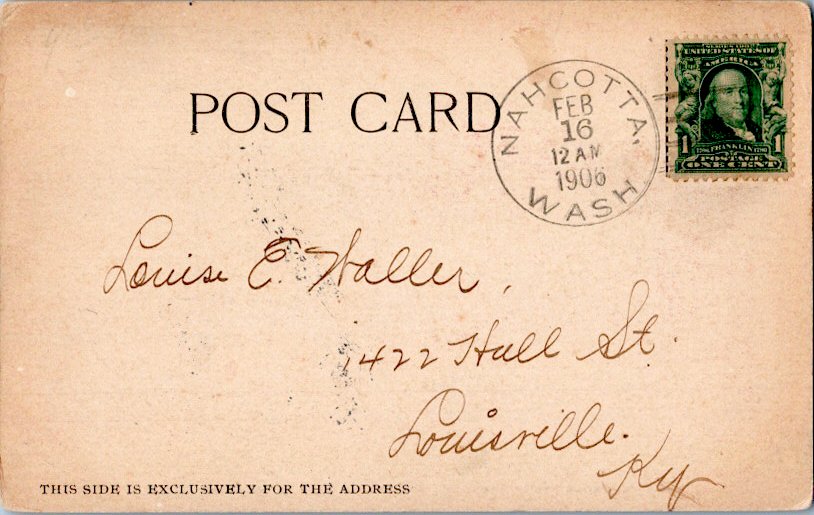 SERIES 1902
UNITED STATES OF
AMERICA
1 FRANKLIN 1
POSTAGE
ONE CENT
POST CARD
NAHCOTTA,
FEB
16
12 AM
1906
WASH
Louise E. Waller,
1422 Hull St.
Louisville.
Ky
THIS SIDE IS EXCLUSIVELY FOR THE ADDRESS